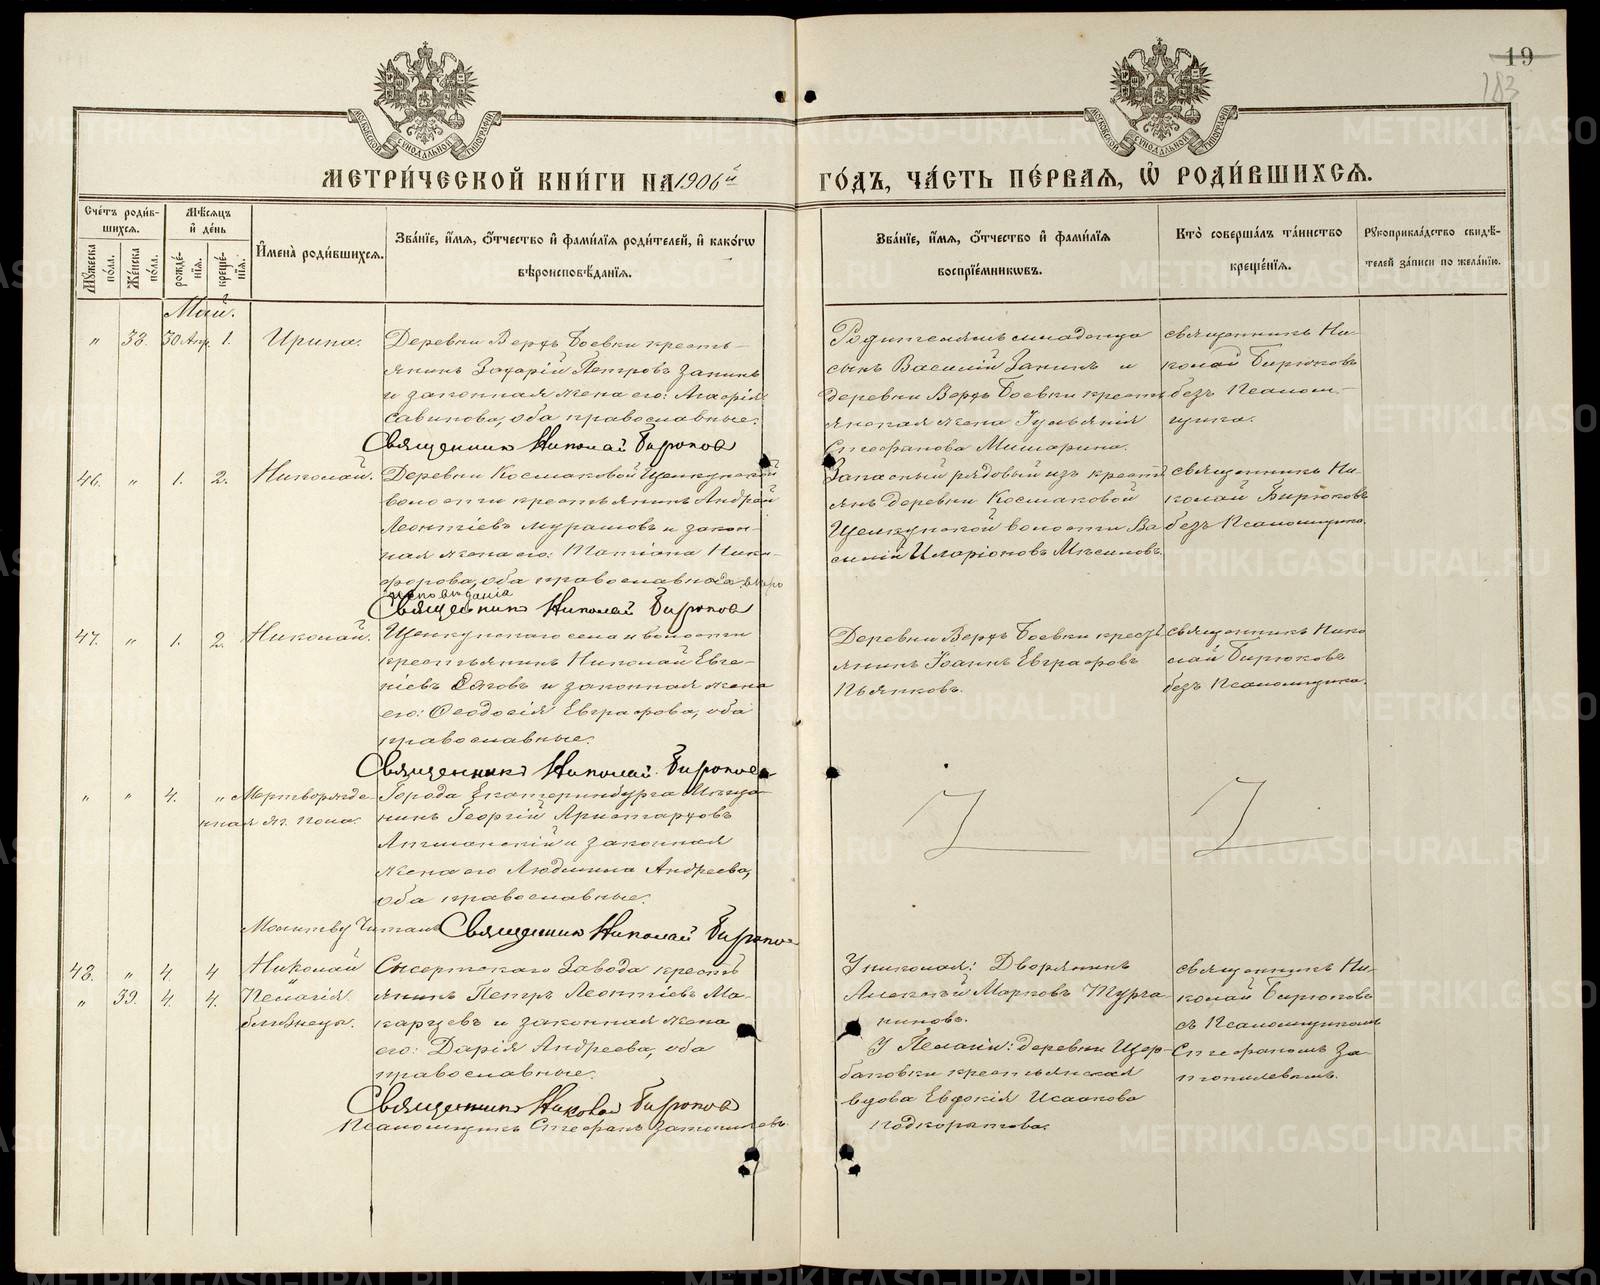 19
183
МОСКОВСКОЙ СѴНОДАЛЬНОЙ ТИПОГРАФІИ
МОСКОВСКОЙ СѴНОДАЛЬНОЙ ТИПОГРАФІИ
МЕТРИ́ЧЕСКОЙ КНИ́ГИ НА 1906й ГО́ДЪ, ЧА́СТЬ ПЕ́РВАЯ, Ѡ҆ РОДИ́ВШИХСЯ.
Сче́тъ роди́в-
шихся.
Мꙋ́жеска по́ла.
Же́нска по́ла.
Мѣ́сяцъ
и҆ де́нь
рожде́-
нїя.
креще́-
нїя.
И҆мена̀ роди́вшихся.
Зва́нїе, и҆́мя, ѻ҆́тчество и҆ фами́лїя роди́телей, и҆ како́гѡ
вѣроисповѣ́данїя.
Зва́нїе, и҆́мя, ѻ҆́тчество и҆ фами́лїя
воспрїе́мниковъ.
Кто̀ соверша́лъ та́инство
креще́нїя.
Рꙋкоприкла́дство свидѣ́-
телей за́писи по жела́нїю.
Май.
" 38. 30 Апр. 1. Ирина.
Деревни Верхъ Боевки кресть-
янинъ Захарій Петровъ Запинъ
и законная жена его: Агафія
Савинова, оба православные.
Священникъ Николай Бирюков
Родителямъ младенца
сынъ Василій Запинъ и
деревни Верхъ Боевки кресть
янская жена Гульянія
Стефанова Мишарина.
священникъ Ни-
колай Бирюковъ
безъ Псалом-
щика.
46. " 1. 2. Николай.
Деревни Космаковой Щелкунской
волости крестьянинъ Андрей
Леонтіевъ Мурашовъ и закон-
ная жена его: Татіана Ники-
форова, оба православнаго вѣро
исповѣданія
Священникъ Николай Бирюков
Запасный рядовый изъ кресть
янъ деревни Космаковой
Щелкунской волости Ва
силій Иларіоновъ
священникъ Ни-
колай Бирюковъ
безъ Псаломщика.
47. " 1. 2. Николай.
Щелкунскаго села и волости
крестьянинъ Николай Евге-
ніевъ и законная жена
его: Ѳеодосія Евграфова, оба
православные.
Священникъ Николай Бирюков
Деревни Верхъ Боевки кресть
янинъ Іоаннъ Евграфовъ
Пьянковъ.
священникъ Нико
лай Бирюковъ
безъ Псаломщика.
" " 4. " Мертворожде-
нная ж. пола.
Города Екатеринбурга Мѣща-
нинъ Георгій Аристарховъ
и законная
жена его Людмила Андреева,
оба православные.
Молитву Читалъ Священникъ Николай Бирюков
48. " 4. 4 Николай
" 39. 4. 4. Пелагія
близнецы.
Сысертскаго Завода кресть
янинъ Петръ Леонтіевъ Ма-
карцевъ и законная жена
его: Дарія Андреева, оба
православные.
Священникъ Николай Бирюков
Псаломщикъ Стефанъ Затопляевъ.
У Николая: Дворянинъ
Алексѣй Марковъ Турча-
ниновъ.
У Пелагіи: деревни Щер-
баковки крестьянская
вдова Евдокія Исаакова
Подкорытова.
священникъ Ни-
колай Бирюковъ
съ Псаломщикомъ
Стефаномъ За-
топляевымъ.
METRIKI.GASO-URAL.RU